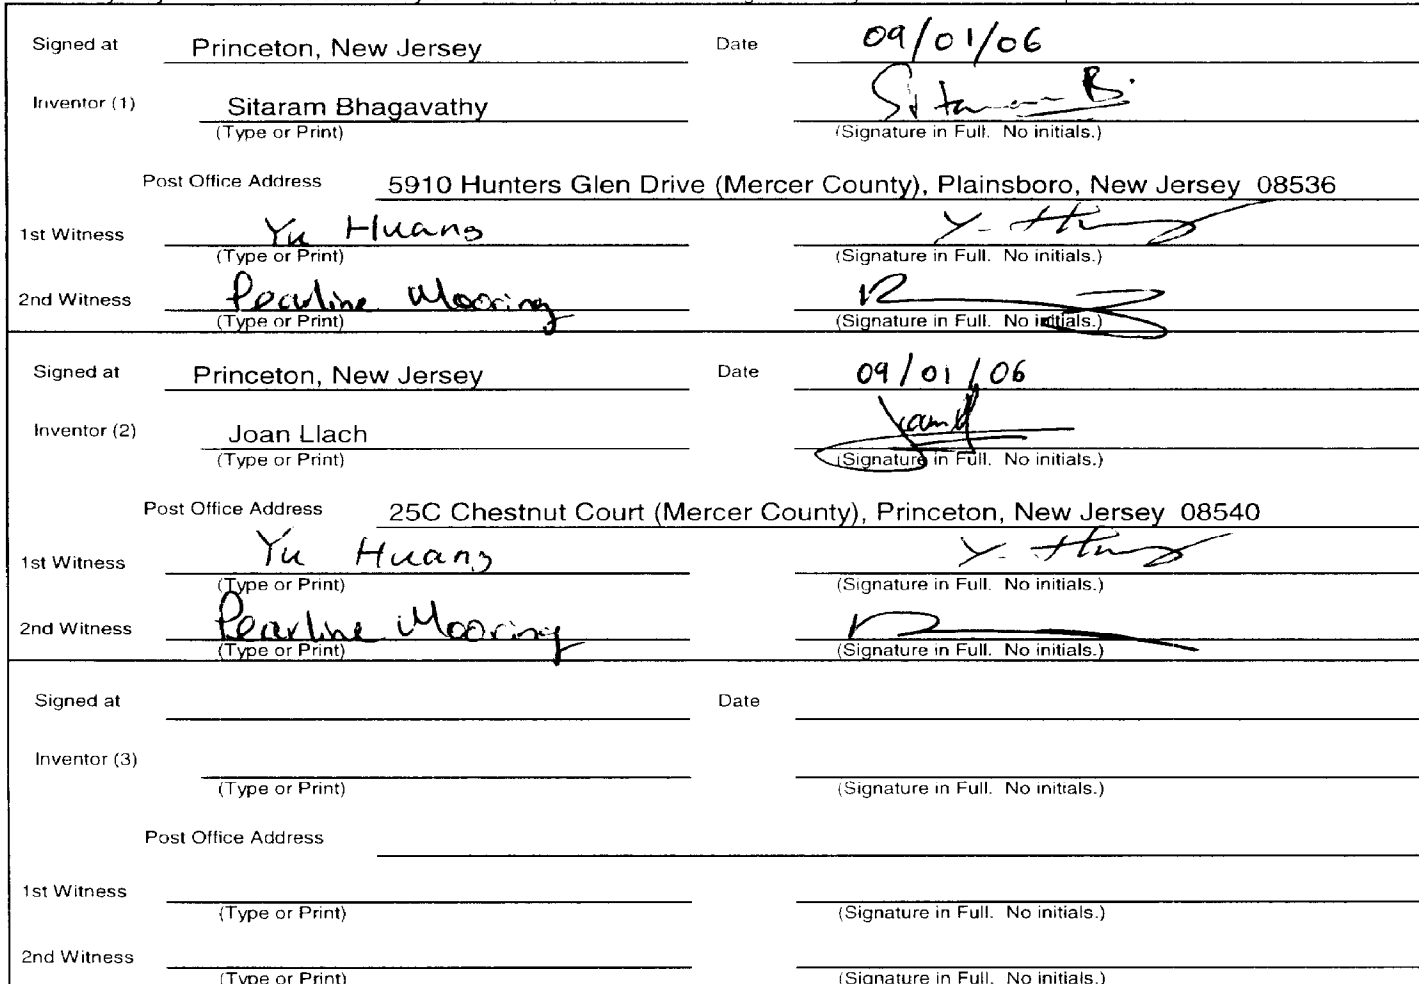 Signed at Princeton, New Jersey Date 09/01/06
Inventor (1) Sitaram Bhagavathy Sitaram B.
(Type or Print) (Signature in Full. No initials.)
Post Office Address 5910 Hunters Glen Drive (Mercer County), Plainsboro, New Jersey 08536
1st Witness Yu Huang Y. Huang
(Type or Print) (Signature in Full. No initials.)
2nd Witness Pearline Mooring
(Type or Print) (Signature in Full. No initials.)
Signed at Princeton, New Jersey Date 09/01/06
Inventor (2) Joan Llach
(Type or Print) (Signature in Full. No initials.)
Post Office Address 25C Chestnut Court (Mercer County), Princeton, New Jersey 08540
1st Witness Yu Huang Y. Huang
(Type or Print) (Signature in Full. No initials.)
2nd Witness Pearline Mooring
(Type or Print) (Signature in Full. No initials.)
Signed at Date
Inventor (3)
(Type or Print) (Signature in Full. No initials.)
Post Office Address
1st Witness
(Type or Print) (Signature in Full. No initials.)
2nd Witness
(Type or Print) (Signature in Full. No initials.)